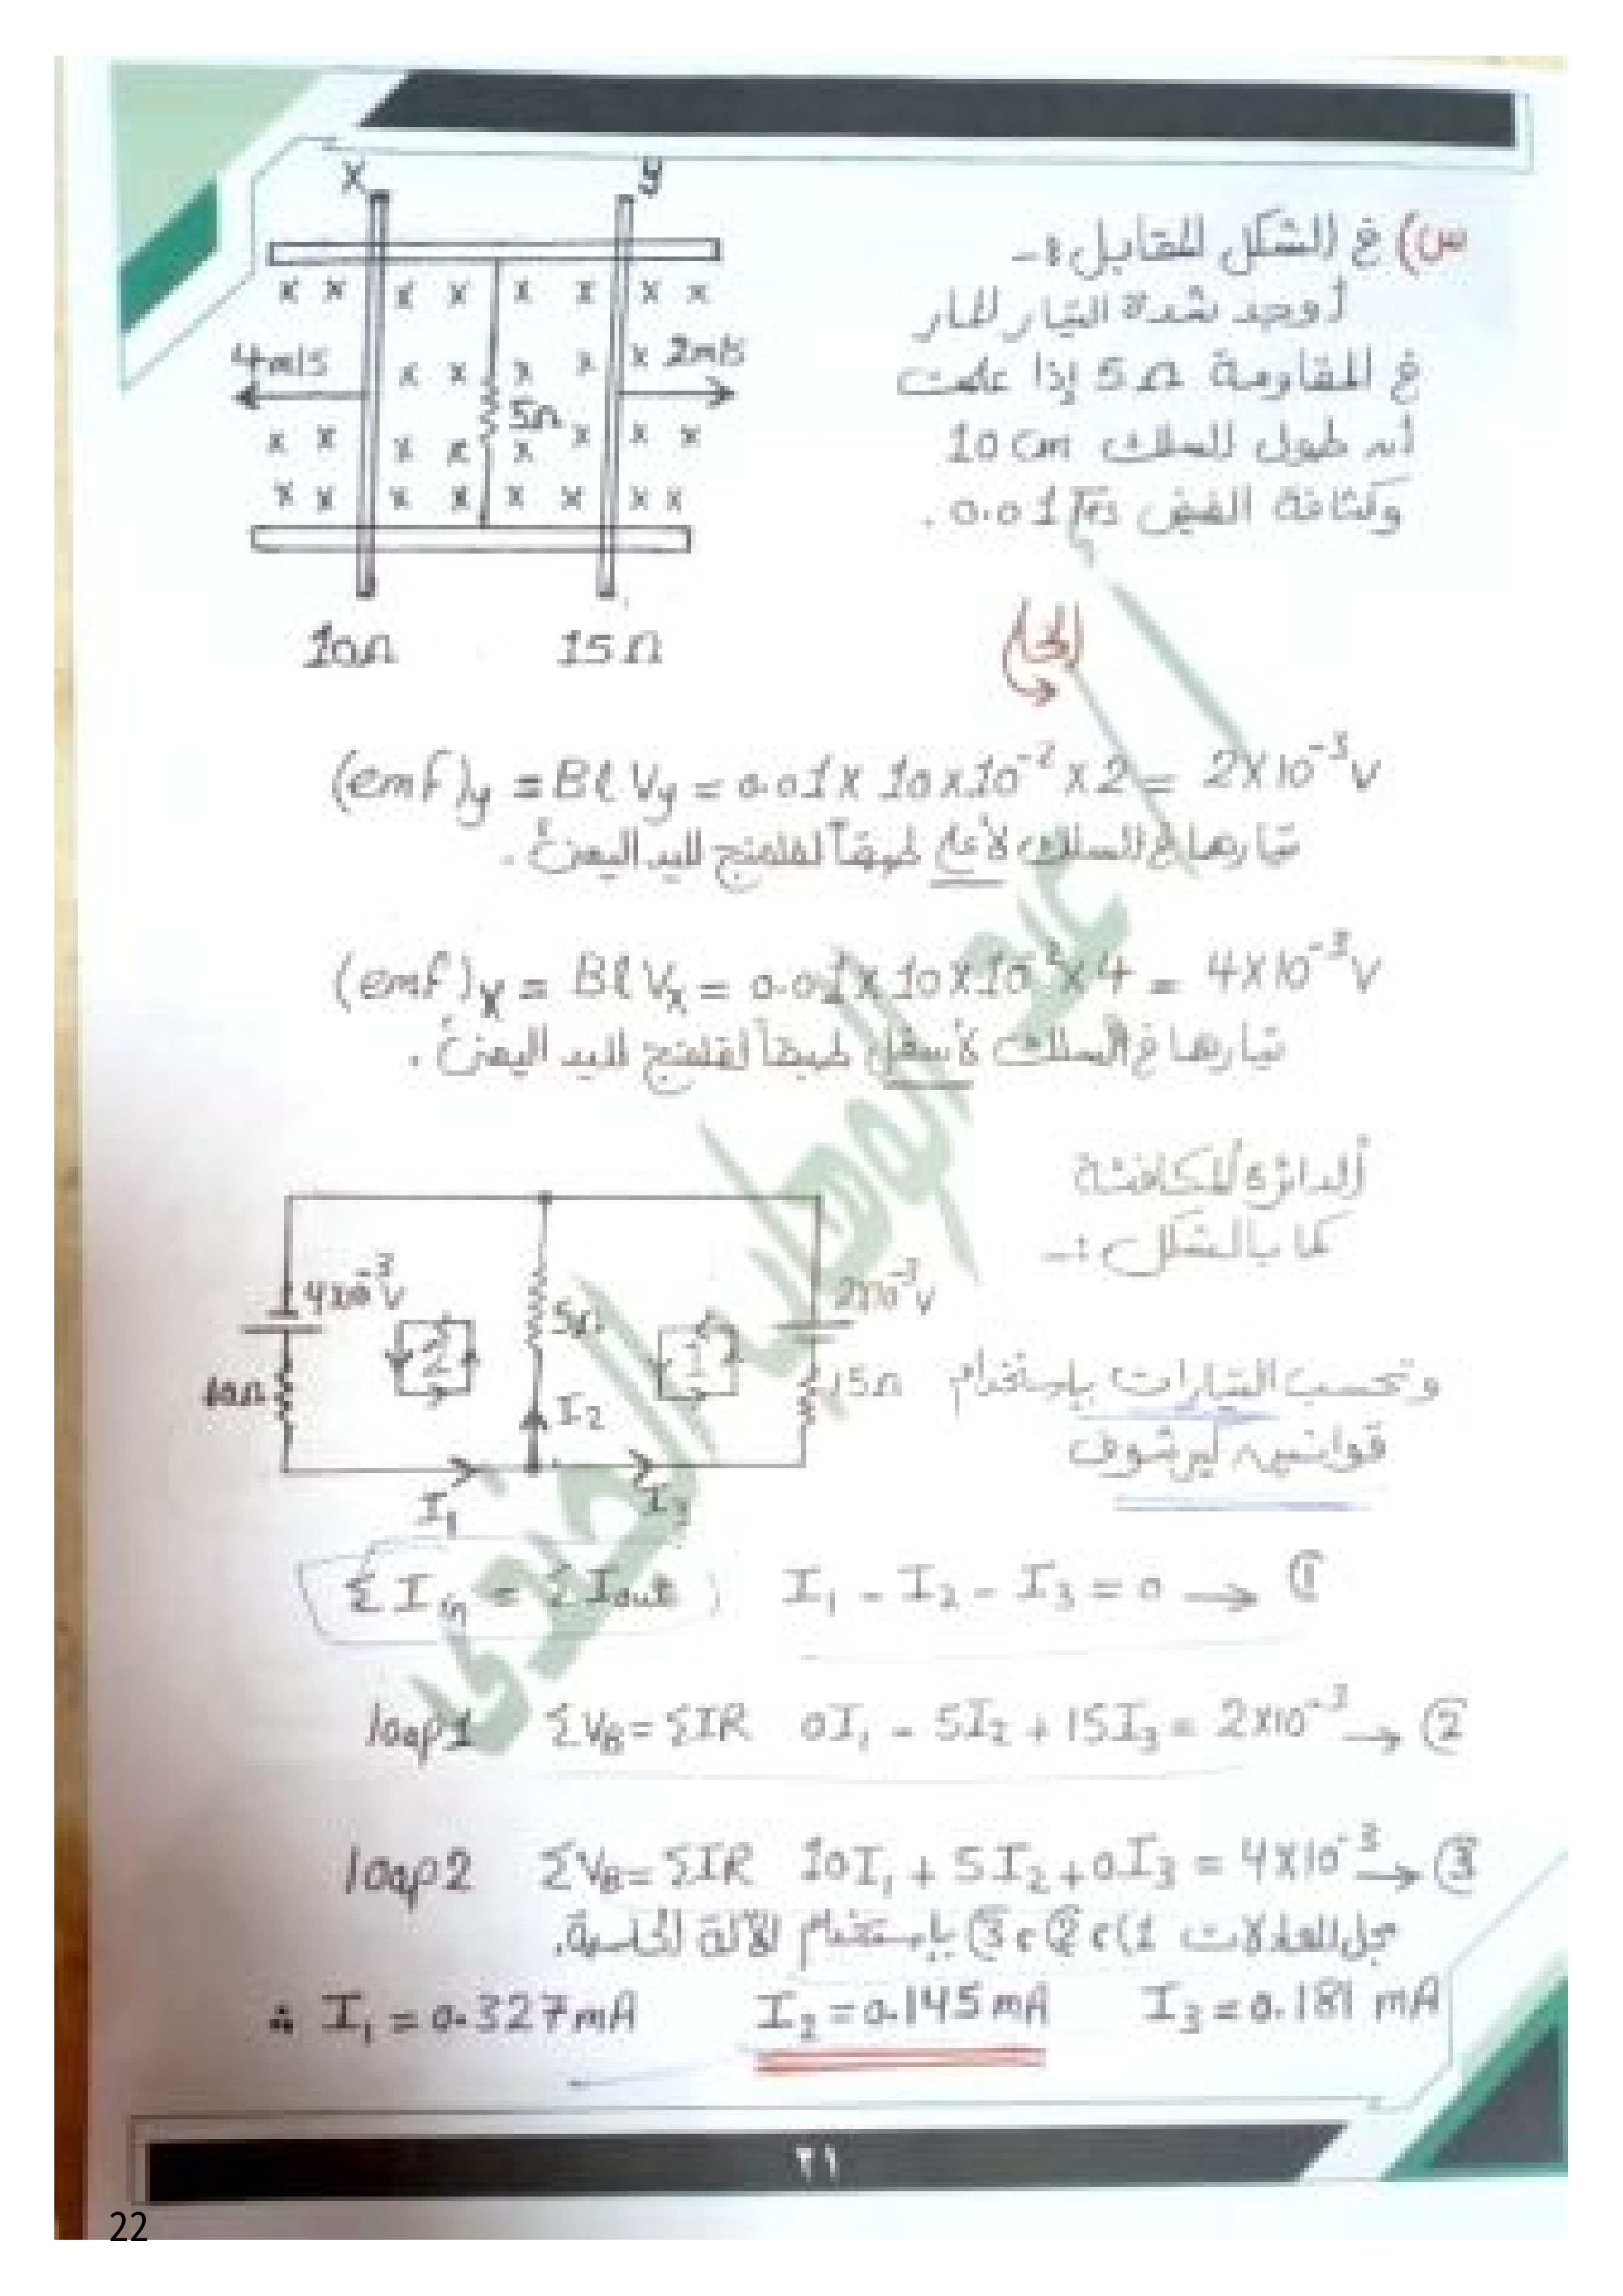 س) في الشكل المقابل :-
أوجد شدة التيار المار
في المقاومة 5Ω إذا علمت
أن طول السلك 10 cm
وكثافة الفيض 0.01 Tes .
X
y
x x x x x x x x
4m/s
x x x x x 2m/s
5Ω
x x x x x x x x
x x x x x x x x
10Ω
15Ω
الحل
(emf)y = BℓVy = 0.01 × 10×10⁻² × 2 = 2×10⁻³ v
تيارها في السلك لأعلى طبقاً لفلمنج لليد اليمنى .
(emf)x = BℓVx = 0.01 × 10×10⁻² × 4 = 4×10⁻³ v
تيارها في السلك لأسفل طبقاً لفلمنج لليد اليمنى .
الدائرة المكافئة
كما بالشكل :-
4×10⁻³ V
5Ω
2×10⁻³ v
2
1
10Ω
15Ω
I₂
I₁
I₃
وتحسب التيارات باستخدام
قوانين كيرشوف
Σ I in = Σ I out ; I₁ - I₂ - I₃ = 0 → ①
loop1 ΣVB = ΣIR 0I₁ - 5I₂ + 15I₃ = 2×10⁻³ → ②
loop2 ΣVB = ΣIR 10I₁ + 5I₂ + 0I₃ = 4×10⁻³ → ③
بحل المعادلات 1 ، ② ، ③ باستخدام الآلة الحاسبة.
∴ I₁ = 0.327 mA I₂ = 0.145 mA I₃ = 0.181 mA
٢١
22